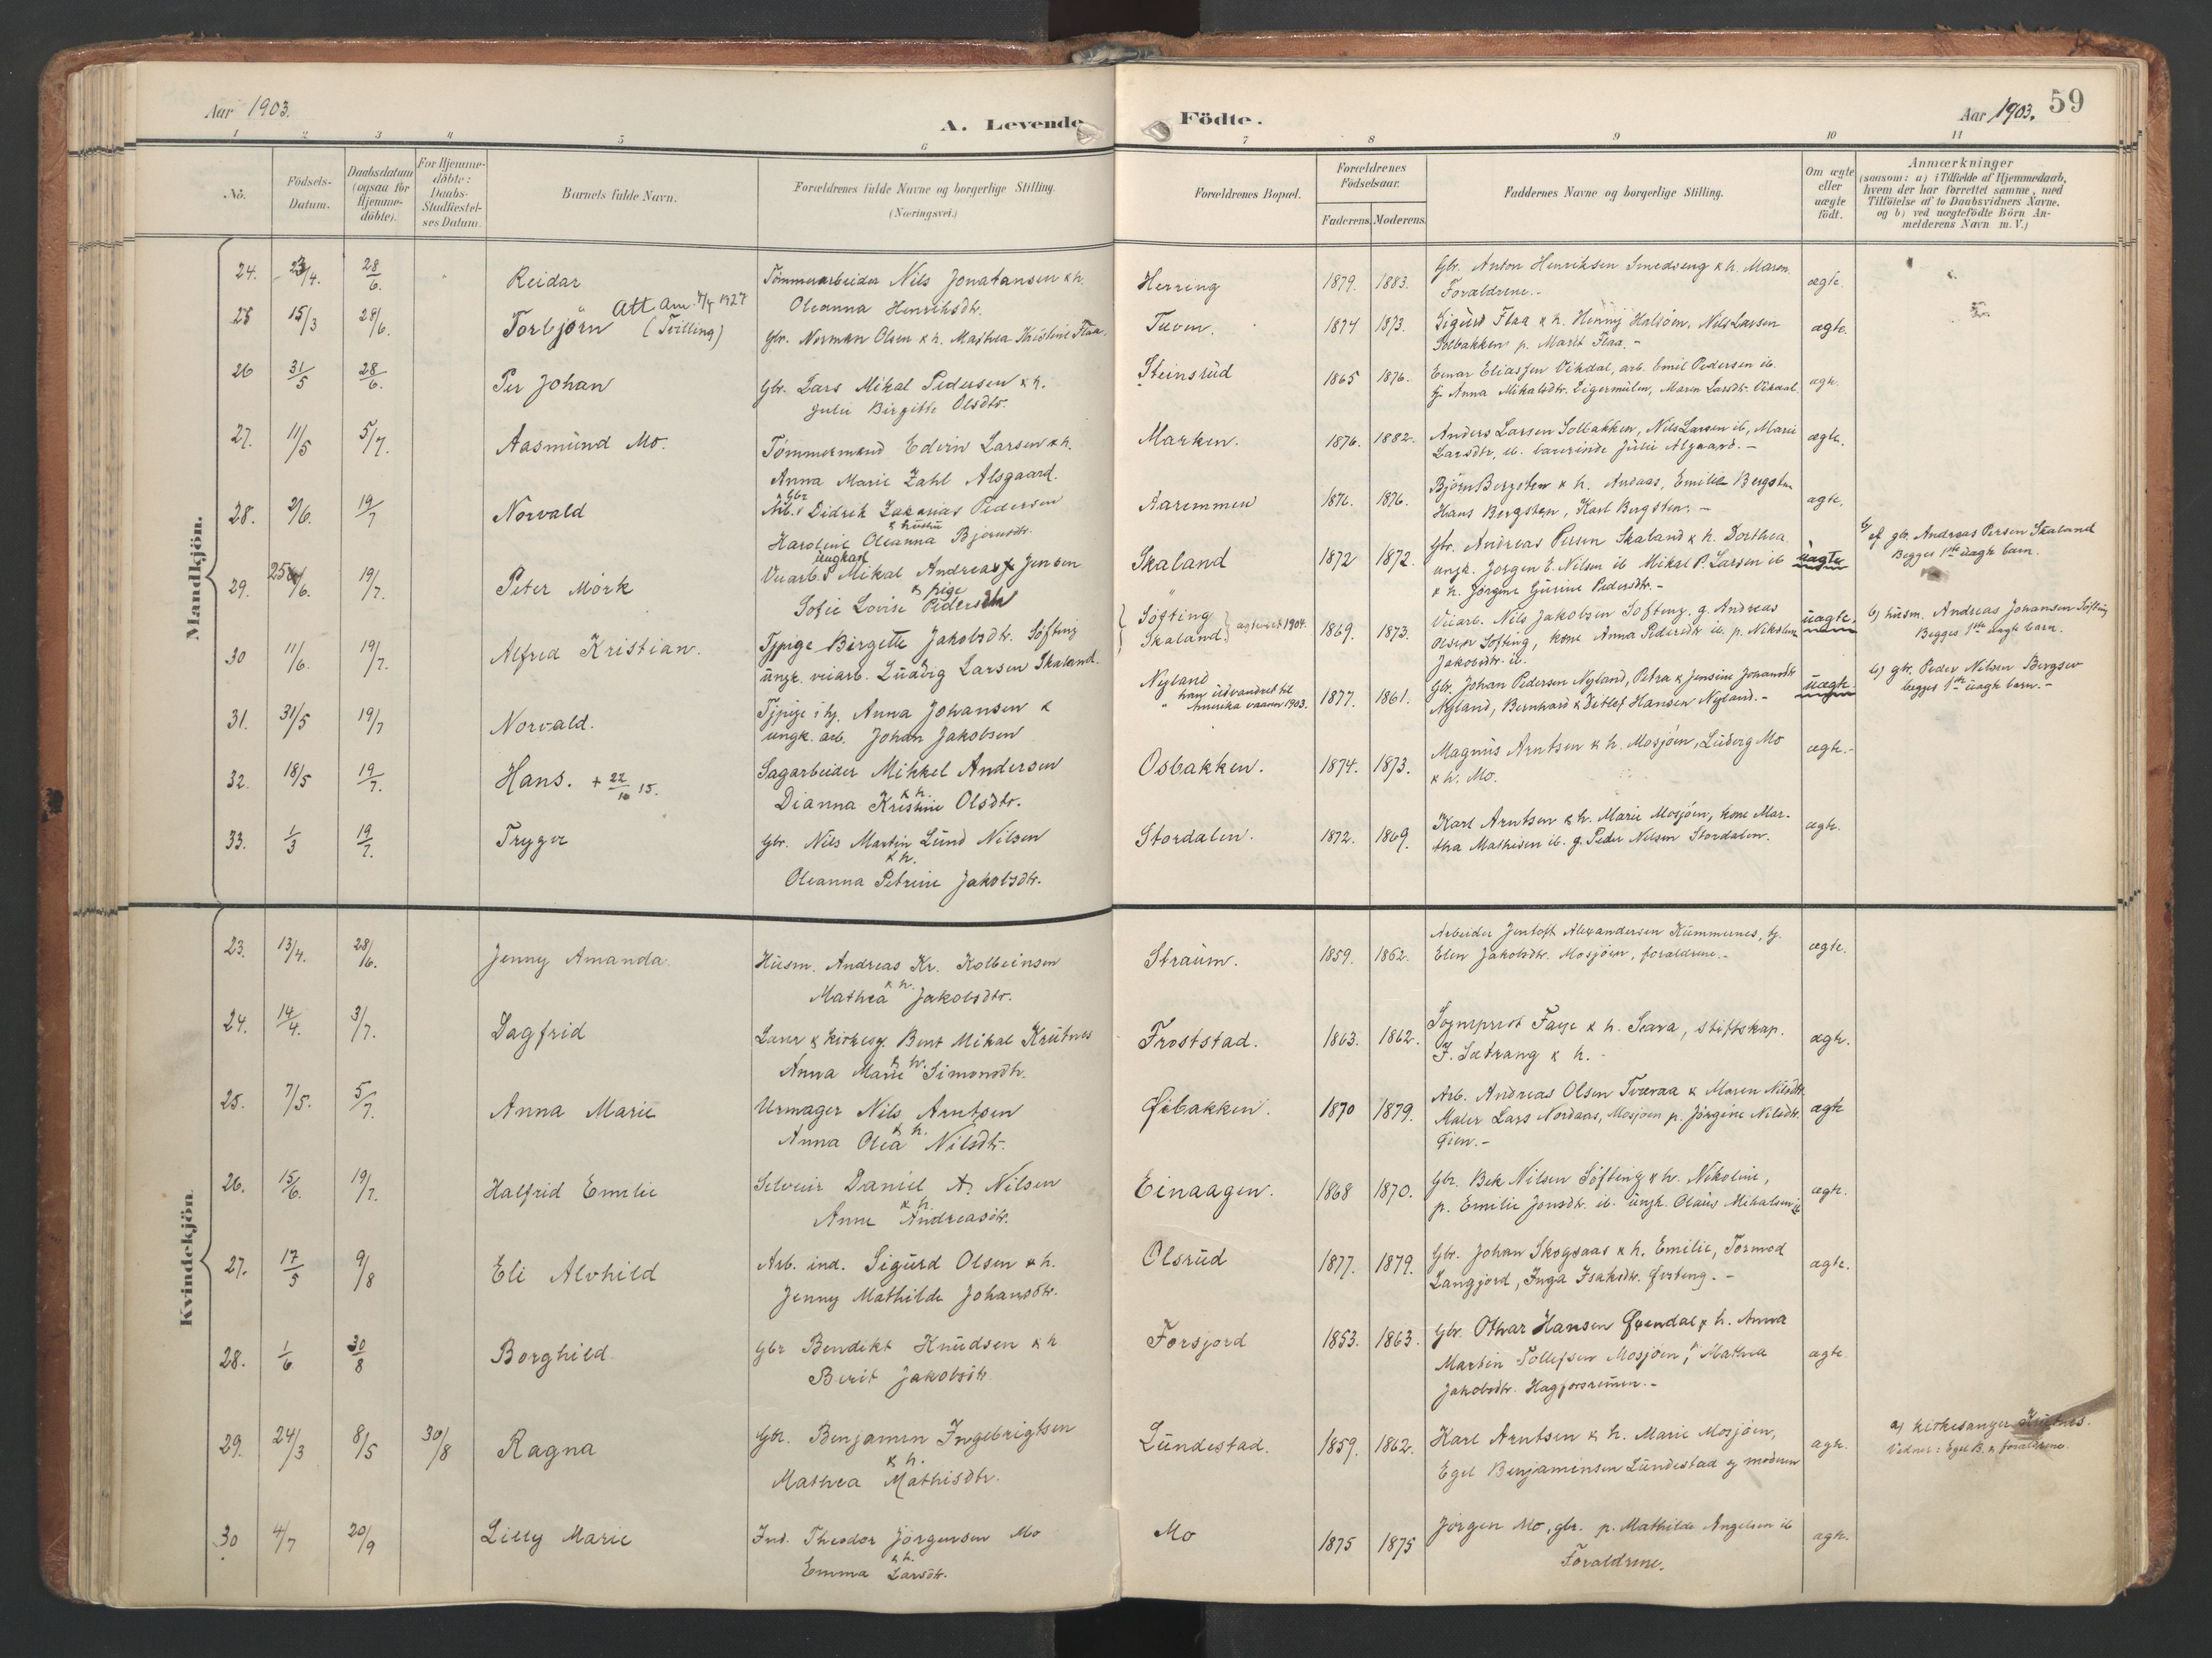 Aar 1903.
A. Levende
Födte.
Aar 1903. 59
1 2 3 4 5 6 7 8 9 10 11
No.
Födsels-
Datum.
Daabsdatum
(ogsaa for
Hjemme-
döbte).
For Hjemme-
döbte:
Daabs-
Stadfæstel-
ses Datum.
Barnets fulde Navn.
Forældrenes fulde Navne og borgerlige Stilling.
(Næringsvei.)
Forældrenes Bopæl.
Forældrenes
Födselsaar.
Faderens. Moderens.
Faddernes Navne og borgerlige Stilling.
Om ægte
eller
uægte
födt.
Anmærkninger
(saasom: a) i Tilfælde af Hjemmedaab,
hvem der har forrettet samme, med
Tilföielse af to Daabsvidners Navne.
og b) ved uægtefödte Börn An-
melderens Navn m. V.)
Mandkjön.
24. 23/4. 28/6. Reidar
Tömmerarbeider Nils Jonatansen & h.
Oleanna Henriksdtr.
Herring 1879. 1883.
Gbr. Anton Henriksen Smedseng & h. Maren.
Forældrene.-
ægte.
25 15/3 28/6. Torbjörn (Tvilling)
Att. 1927
Gbr. Norman Olsen & h. Mathea Kristine Flaa.
Tuven. 1874 1873.
Sigurd Flaa & h. Henny Halsöen. Nils Larsen
Solbakken p. Marit Flaa.-
ægte.
26 31/5 28/6. Per Johan
Gbr. Lars Mikal Pedersen & h.
Julie Birgitte Olsdtr.
Steinsrud 1865 1876.
Einar Eliassen Vikdal, arb. Emil Pedersen ib.
Anna Mikalsdtr. Ligermulen, Maren Larsdtr. Vikdal
ægte.
27. 11/5 5/7. Aasmund Mo.
Tömmermand Edvin Larsen & h.
Anna Marie Zahl Alsgaard.
Marken. 1876. 1882.
Anders Larsen Solbakken, Nils Larsen ib, Marie
Larsdtr. ib. lærerinde Julie Algaard.-
ægte.
28. 2/6. 19/7 Norvald
& Gbr
Arb. Didrik Zakarias Pedersen
& hustru
Haroline Oleanna Bjornsdtr.
Aaremmen 1876. 1876.
Björn Bergsten & h. Andaas, Emilie Bergsten
Hans Bergsten, Karl Bergsten.-
ægte.
29. 25/6. 19/7. Peter Mörk
ungkarl
Veiarb. Mikal Andreas Jensen
& pige
Sofie Lovise Pedersdtr
Skaland 1872 1872.
Gbr. Andreas Persen Skaland & h. Dorthea
ungk. Jorgen E. Nilsen ib Mikal P. Larsen ib
& h. Jörgine Gurine Pedersdtr.-
uægte
b/ af gbr. Andreas Persen Skaland
Begges 1ste uægte barn.
30 11/6. 19/7. Alfred Kristian.
Tjpige Birgitte Jakobsdtr. Söfting
ungk. veiarb. Ludvig Larsen Skaland.
Söfting
Skaland. 1904. 1869. 1873.
Veiarb. Nils Jakobsen Söfting, g. Andreas
Olsen Söfting, kone Anna Pedersdtr ib. p. Nikoline
Jakobsdtr. ib.
uægte.
b) husm. Andreas Johansen Söfting
Begges 1ste uægte barn.
31. 31/5 19/7 Norvald.
Tjpige i hj. Anna Johansen &
ungk. arb. Johan Jakobsen
Nyland
han udvandret til
" Amerika vaaren 1903. 1877. 1861.
Gbr. Johan Pedersen Nyland, Petra & Jensine Johansdtr
Nyland, Bernhard & Ditlef Hansen Nyland.-
uægte.
b) gbr. Peder Nilsen Bergsev
begges 1ste uægte barn.-
32. 18/5 19/7. Hans. + 22/10 15.
Sagarbeider Mikkel Andersen
& h.
Dianna Kristine Olsdtr.
Osbakken. 1874. 1873.
Magnus Arntsen & h. Mosjöen, Ludvig Mo
& h. Mo.
ægte.-
33. 1/3 19/7. Trygve
Gbr. Nils Martin Lund Nilsen
& h.
Oleanna Petrine Jakobsdtr.
Stordalen. 1872. 1869.
Karl Arntsen & h. Marie Mosjöen, kone Mar-
tha Mathisen ib. g. Peder Nilsen Stordalen.
ægte.
Kvindekjön.
23. 13/4. 28/6. Jenny Amanda
Husm. Andreas Kr. Kolbeinsen
& h.
Mathea Jakobsdtr.
Straum. 1859. 1862.
Arbeider Jentoft Alexandersen Kummernes, tj.
Elen Jakobsdtr. Mosjöen, forældrene.-
ægte.
24. 14/4. 3/7. Dagfrid
Lærer & kirkesg. Bent Mikal Krutnes
& h.
Anna Marie Simonsdtr.
Froststad. 1863. 1862.
Sogneprest Faye & h. Seava, stiftskap.
J. Sætrang & h.-
ægte.
25. 7/5. 5/7. Anna Marie
Urmager Nils Arntsen
& h.
Anna Olea Nilsdtr.
Øibakken. 1870 1879.
Arb. Andreas Olsen Tveraa & Maren Nilsdtr.
Maler Lars Nordaas, Mosjöen p. Jörgine Nilsdtr.
Öien.-
ægte
26. 15/6. 19/7. Halfrid Emilie
Selveier Daniel A. Nilsen
& h.
Anne Andreasdtr.
Einaagen. 1868 1870.
Gbr. Bek Nilsen Söfting & h. Nikoline,
p. Emilie Jonsdtr. ib. ungk. Olaus Mikalsen ib
ægte.
27. 17/5 9/8 Eli Alvhild
Arb. ind. Sigurd Olsen & h.
Jenny Mathilde Johansdtr.
Olsrud 1877. 1879.
Gbr. Johan Skogsaas & h. Emilie, Tormod
Langjord, Inga Isaksdtr. Örteng.-
ægte.
28. 1/6 30/8 Borghild
Gbr Bendikt Knudsen & h
Berit Jakobsdtr
Forsjord 1853. 1863.
Gbr. Othar Hansen Øvendal & h. Anna
Martin Tollefsen Mosjöen, Mathea
Jakobsdtr. Hagforsremen.-
ægte.
29. 24/3 8/5 30/8 Ragna
Gbr. Benjamin Ingebrigtsen
& h.
Mathea Mathisdtr.
Lundestad. 1859. 1862.
Karl Arntsen & h. Marie Mosjöen,
Egel Benjaminsen Lundestad og moderen
ægte.
a) kirkesanger Krutnes.
Vidner: Egel B. & forældrene.
30 4/7 20/9 Lilly Marie
Ind. Theodor Jörgensen Mo
& h.
Emma Larsdtr.
Mo 1875 1875
Jörgen Mo, gbr. p. Mathilde Angelsen ib
Forældrene.
ægte.